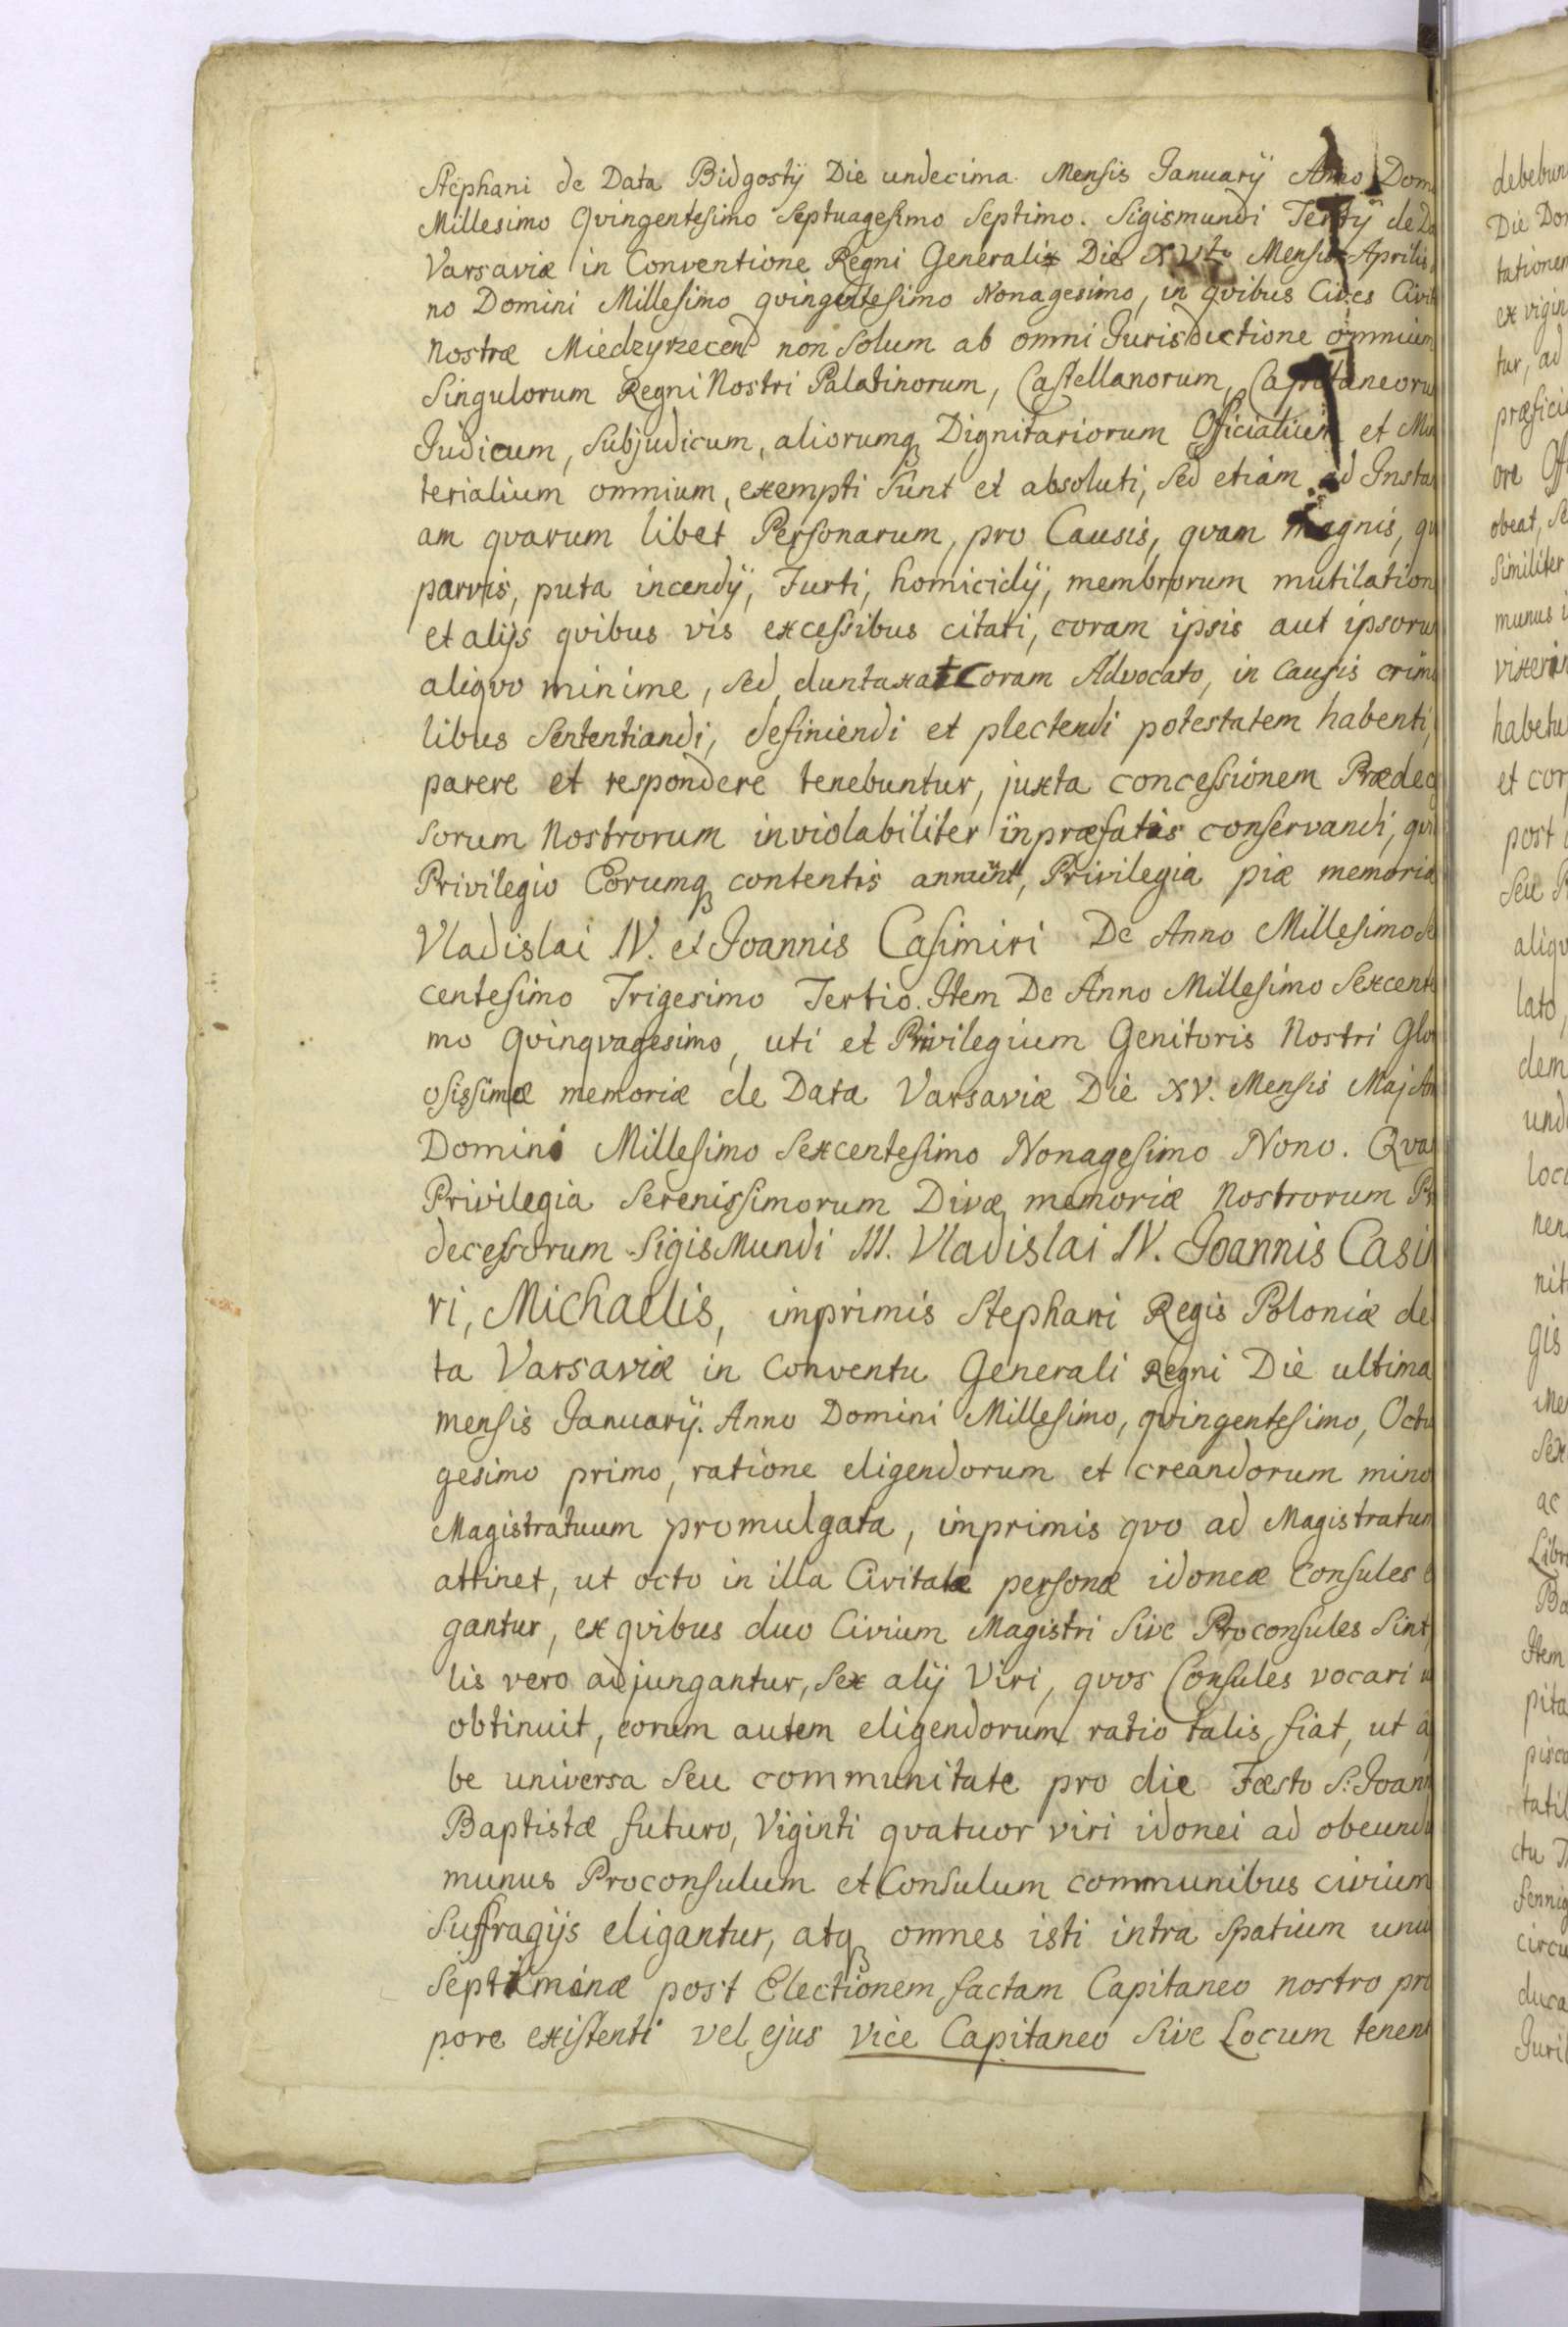 Stephani de Data Bidgostÿ Die undecima Mensis Januarÿ Anno Dom
Millesimo Qvingentesimo Septuagesimo Septimo. Sigismundi Tertÿ de Da
Varsaviæ in Conventione Regni Generali Die XVto Mensis Aprilis
no Domini Millesimo qvingentesimo Nonagesimo, in qvibus Cives Civit
Nostræ Miedzyrzecen non solum ab omni Jurisdictione omnium
Singulorum Regni Nostri Palatinorum, Castellanorum, Capitaneoru
Judicum, Subjudicum, aliorumq Dignitariorum Officialium et Min
terialium omnium, exempti sunt et absoluti, sed etiam ad Insta
am qvarum libet Personarum, pro Causis, qvam magnis, qv
parvis, puta incendÿ, Furti, homicidÿ, membrorum mutilation
et alÿs qvibus vis excessibus citati, coram ipsis aut ipsoru
aliqvo minime, sed duntaxat Coram Advocato, in Causis crimi
libus Sententiandi, definiendi et plectendi potestatem habenti,
parere et respondere tenebuntur, juxta concessionem Prædec
sorum Nostrorum inviolabiliter in præfatis conservandi, qvi
Privilegio Eorumq contentis annuunt, Privilegia piæ memoriæ
Vladislai IV. et Joannis Casimiri De Anno Millesimo Se
centesimo Trigesimo Tertio. Item De Anno Millesimo Sexcente
mo Qvinqvagesimo, uti et Privilegium Genitoris Nostri Glor
osissimæ memoriæ de Data Varsaviæ Die XV. Mensis Maj An
Domini Millesimo Sexcentesimo Nonagesimo Nono. Qvæ
Privilegia Serenissimorum Divæ memoriæ Nostrorum Pr
decessorum SigisMundi III. Vladislai IV. Joannis Casim
ri, Michaelis, imprimis Stephani Regis Poloniæ de
ta Varsaviæ in Conventu Generali Regni Die ultima
mensis Januarÿ. Anno Domini Millesimo, qvingentesimo, Octu
gesimo primo, ratione eligendorum et creandorum mino
Magistratuum promulgata, imprimis qvo ad Magistratum
attinet, ut octo in illa Civitate personæ idoneæ Consules e
gantur, ex qvibus duo Civium Magistri Sive Proconsules Sint,
lis vero adjungantur, Sex alÿ Viri, qvos Consules vocari u
obtinuit, eorum autem eligendorum ratio talis fiat, ut a
be universa Seu communitate pro die Fæsto S: Joann
Baptistæ futuro, Viginti qvatuor viri idonei ad obeundu
munus Proconsulum et Consulum communibus civium
Suffragÿs eligantur, atq omnes isti intra Spatium uniu
Septimanæ post Electionem factam Capitaneo nostro pro
pore existenti vel ejus vice Capitaneo Sive Locum tenent
debebun
Die Do
tationem
ex vigin
tur, ad
præfici
ore Off
obeat, Se
Similiter
munus i
vixerin
habetu
et cor
post
Seu
aliqv
lato,
dem
und
loc
nen
nit
gis
Sex
ac
Libr
Item
pita
tatil
ctu
circu
duca
Juri